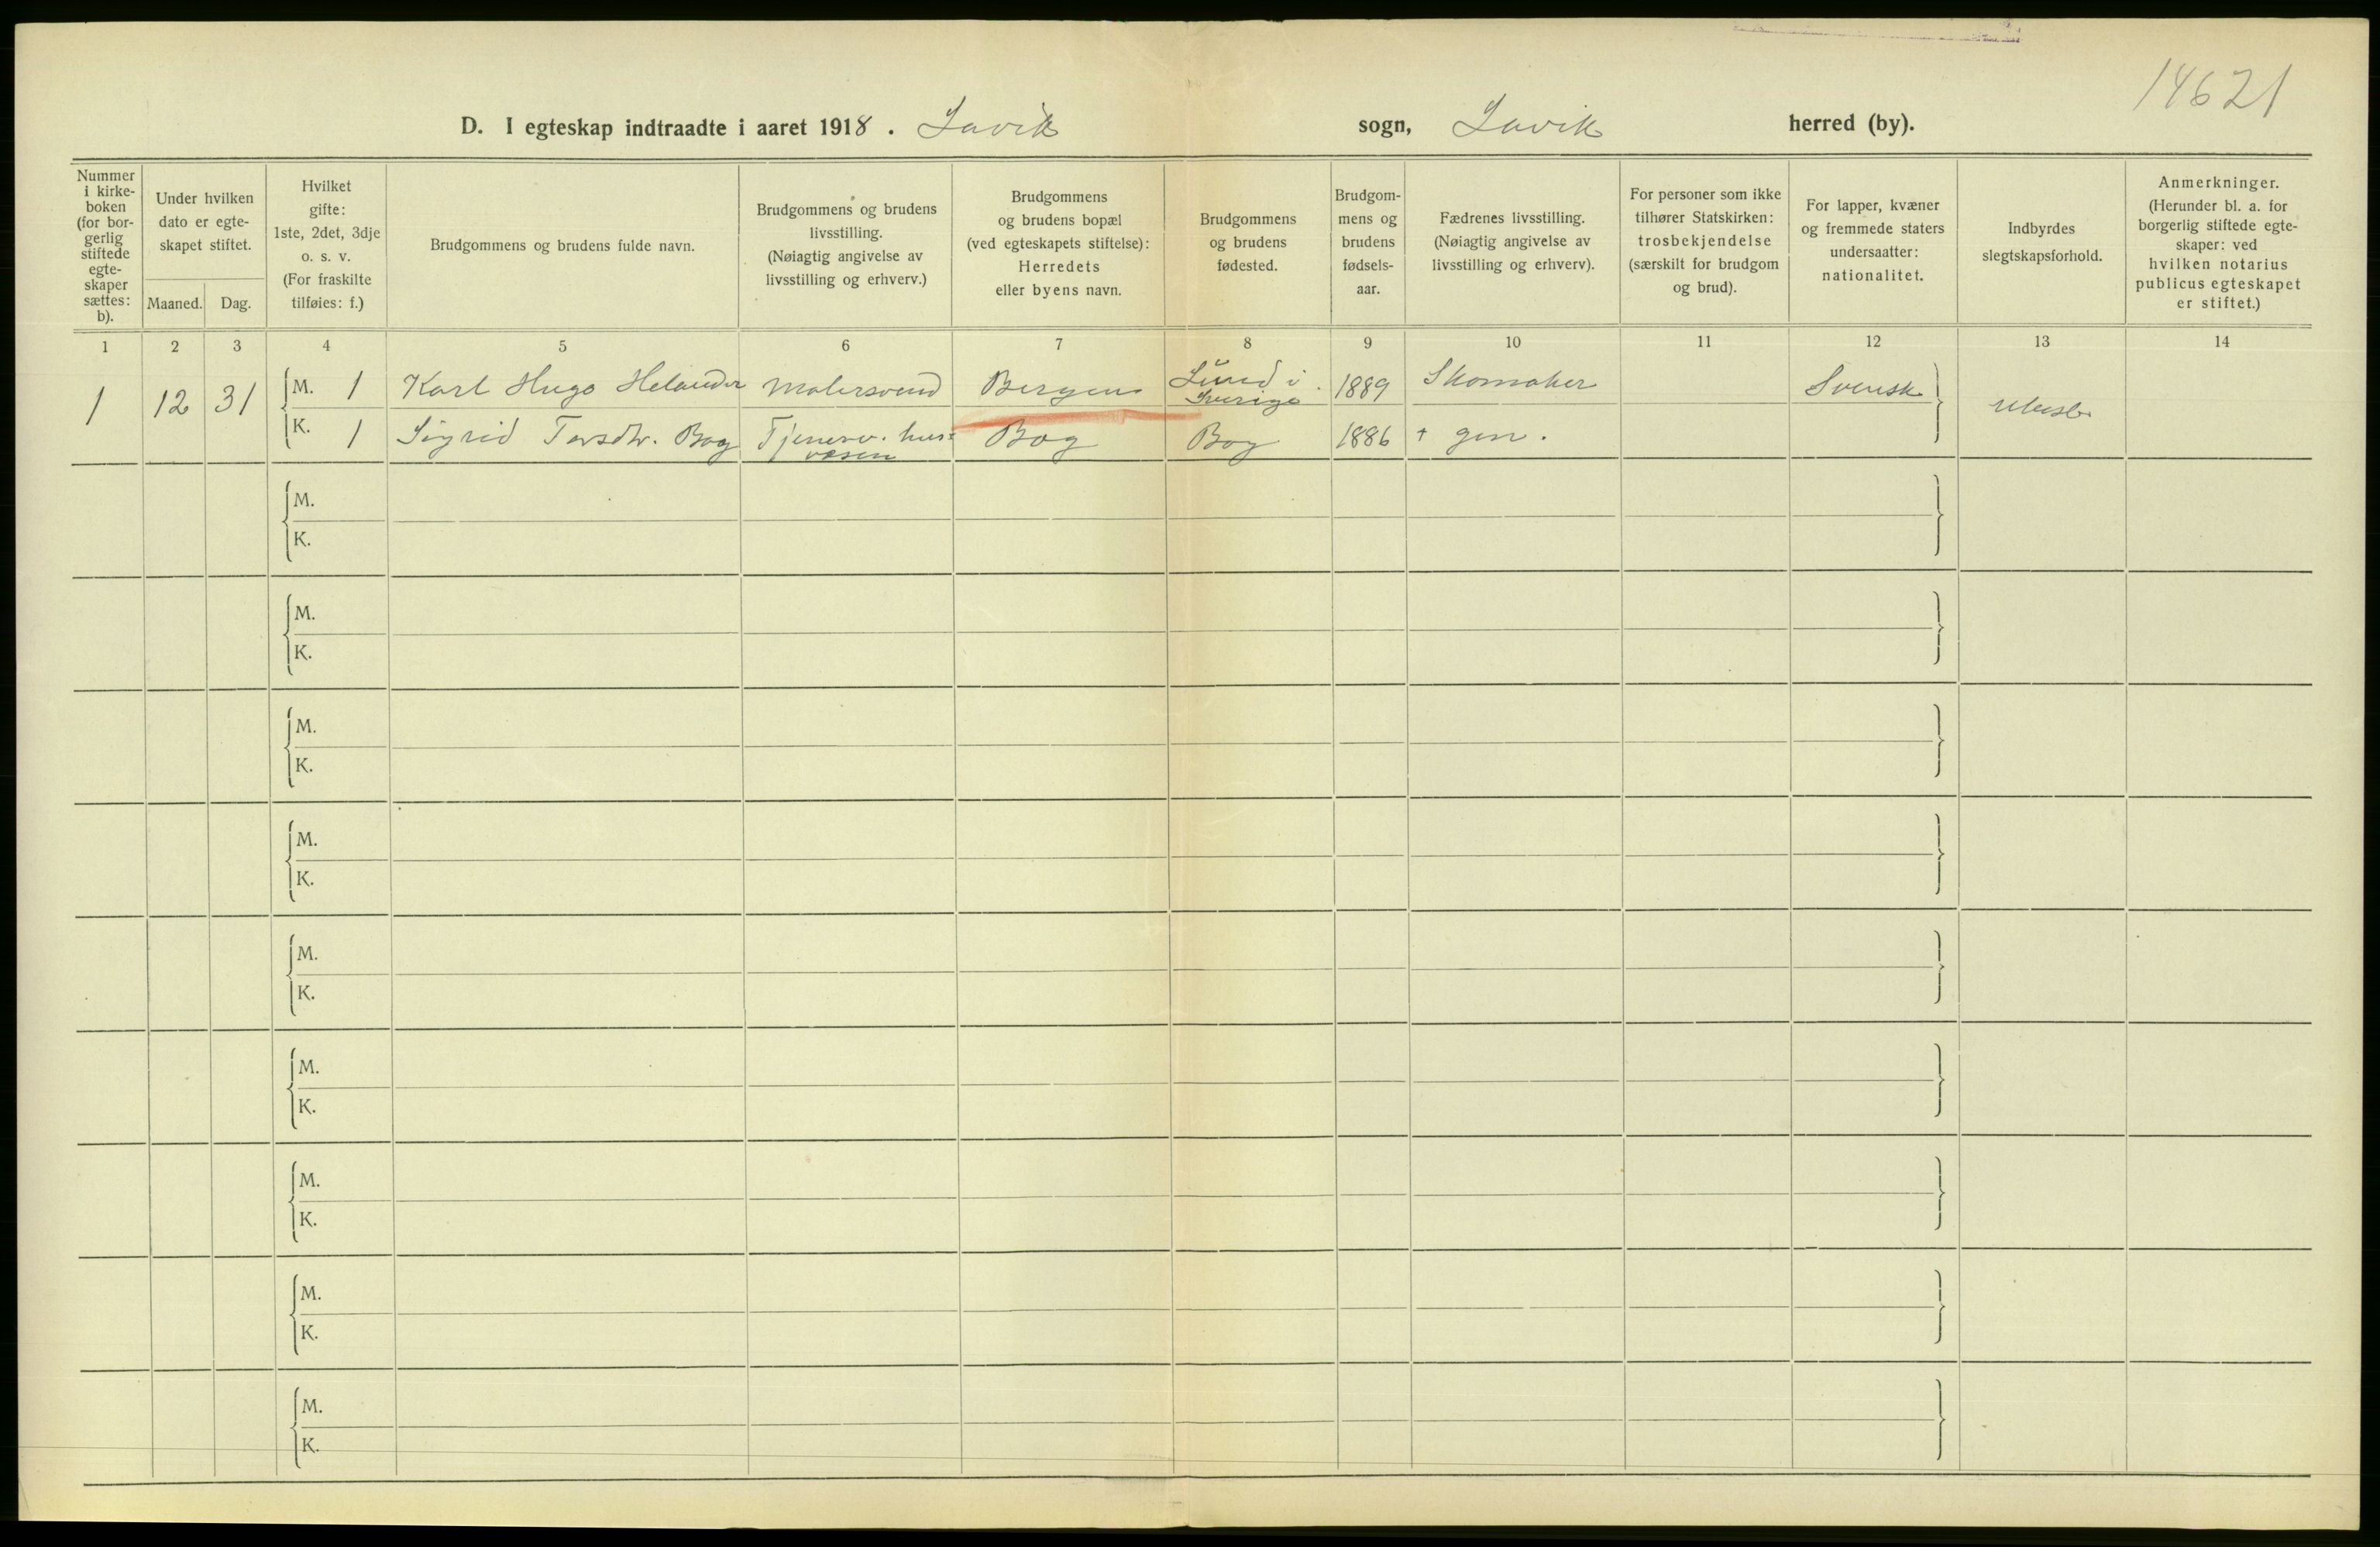 14621
D. I egteskap indtraadte i aaret 1918. Lavik sogn, Lavik herred (by).
Nummer
i kirke-
boken
(for bor-
gerlig
stiftede
egte-
skaper
sættes:
b).
Under hvilken
dato er egte-
skapet stiftet.
Maaned. Dag.
Hvilket
gifte:
1ste, 2det, 3dje
o. s. v.
(For fraskilte
tilføies: f.)
Brudgommens og brudens fulde navn.
Brudgommens og brudens
livsstilling.
(Nøiagtig angivelse av
livsstilling og erhverv.)
Brudgommens
og brudens bopæl
(ved egteskapets stiftelse):
Herredets
eller byens navn.
Brudgommens
og brudens
fødested.
Brudgom-
mens og
brudens
fødsels-
aar.
Fædrenes livsstilling.
(Nøiagtig angivelse av
livsstilling og erhverv).
For personer som ikke
tilhører Statskirken:
trosbekjendelse
(særskilt for brudgom
og brud).
For lapper, kvæner
og fremmede staters
undersaatter:
nationalitet.
Indbyrdes
slegtskapsforhold.
Anmerkninger.
(Herunder bl. a. for
borgerlig stiftede egte-
skaper: ved
hvilken notarius
publicus egteskapet
er stiftet.)
1 2 3 4 5 6 7 8 9 10 11 12 13 14
1 12 31 M. 1 Karl Hugo Helander Malersvend Bergen Lund i Sverige 1889 Skomaker Svensk Ubesl.
K. 1 Sigrid Torsdtr. Bog Tjener v. hus- Bog Bog 1886 + gm.
væsen
M.
K.
M.
K.
M.
K.
M.
K.
M.
K.
M.
K.
M.
K.
M.
K.
M.
K.